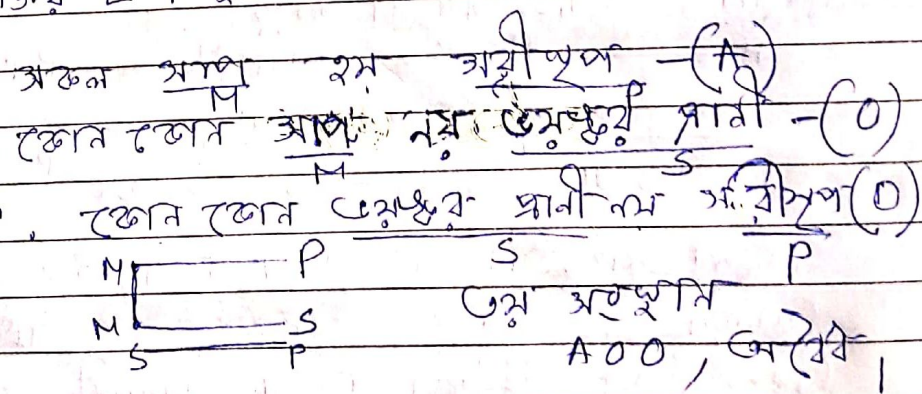 সকল সাপ হয় সরীসৃপ -(A)
M
কোন কোন সাপ নয় ভয়ঙ্কর প্রানী -(O)
M S
কোন কোন ভয়ঙ্কর প্রানী নয় সরীসৃপ (O)
S P
M P
M S
S P
৩য় সংস্থান
AOO, অবৈধ।